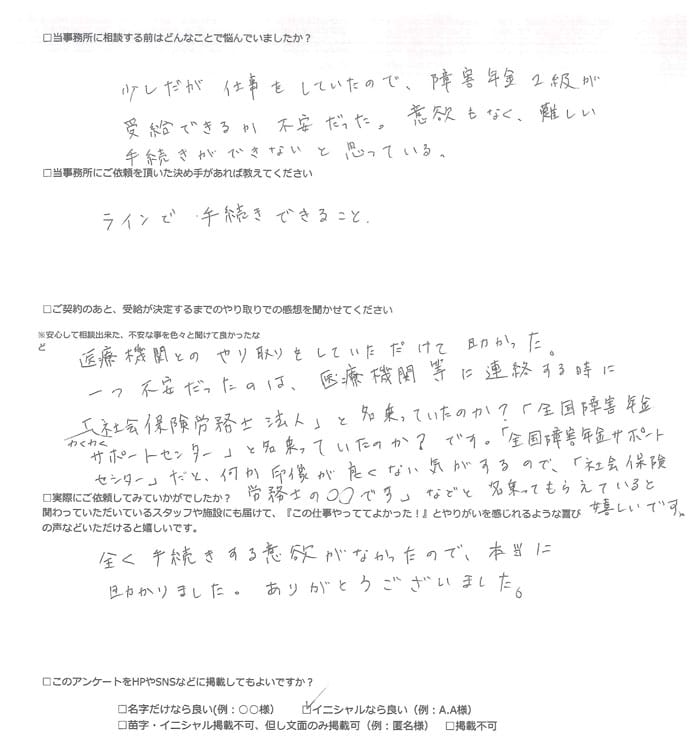 □当事務所に相談する前はどんなことで悩んでいましたか？
少しだが 仕事をしていたので、障害年金2級が
受給できるか 不安だった。意欲もなく、難しい
手続きができないと思っている。
□当事務所にご依頼を頂いた決め手があれば教えてください
ラインで 手続きできること.
□ご契約のあと、受給が決定するまでのやり取りでの感想を聞かせてください
※安心して相談出来た、不安な事を色々と聞けて良かったな
ど
医療機関との やり取りをしていただけて 助かった。
一つ 不安だったのは、医療機関等に連絡する時に
「社会保険労務士法人」と名乗っていたのか？「全国障害年金
わくわく
サポートセンター」と名乗っていたのか？です。「全国障害年金サポート
センター」だと、何か印象が良くない気がするので、「社会保険
労務士の〇〇です」などと 名乗ってもらえていると
嬉しいです。
□実際にご依頼してみていかがでしたか？
関わっていただいているスタッフや施設にも届けて、『この仕事やっててよかった！』とやりがいを感じれるような喜び
の声などいただけると嬉しいです。
全く手続きする意欲がなかったので、本当に
助かりました。ありがとうございました。
□このアンケートをHPやSNSなどに掲載してもよいですか？
□名字だけなら良い(例：○○様） □イニシャルなら良い（例：A.A様）
□苗字・イニシャル掲載不可、但し文面のみ掲載可（例：匿名様） □掲載不可